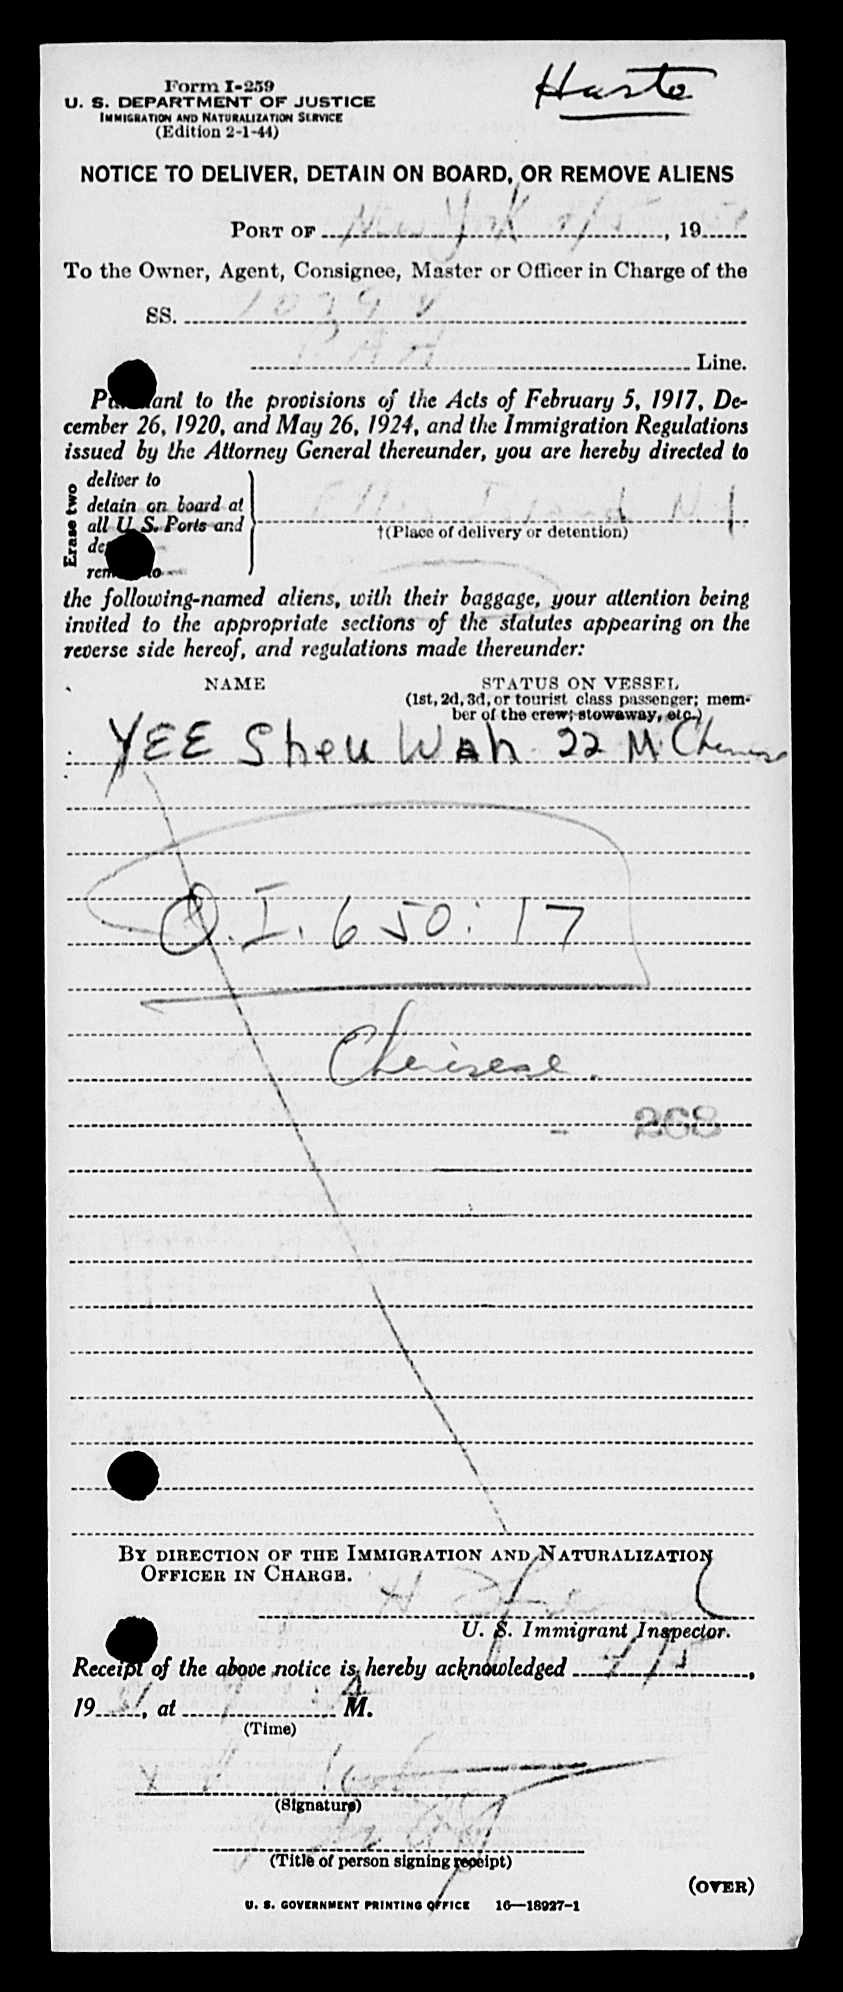 Form I-259
U. S. DEPARTMENT OF JUSTICE
IMMIGRATION AND NATURALIZATION SERVICE
(Edition 2-1-44)
NOTICE TO DELIVER, DETAIN ON BOARD, OR REMOVE ALIENS
PORT OF New York 9/5, 19 51
To the Owner, Agent, Consignee, Master or Officer in Charge of the
SS.
PAA Line.
Pursuant to the provisions of the Acts of February 5, 1917, De-
cember 26, 1920, and May 26, 1924, and the Immigration Regulations
issued by the Attorney General thereunder, you are hereby directed to
Erase two
deliver to
detain on board at
all U. S. Ports and
remove to
Ellis Island N.Y.
†(Place of delivery or detention)
the following-named aliens, with their baggage, your attention being
invited to the appropriate sections of the statutes appearing on the
reverse side hereof, and regulations made thereunder:
NAME STATUS ON VESSEL
(1st, 2d, 3d, or tourist class passenger; mem-
ber of the crew; stowaway, etc.)
YEE Sheu Wah 22 M Chinese
O.I. 650:17
Cheinese.
268
BY DIRECTION OF THE IMMIGRATION AND NATURALIZATION
OFFICER IN CHARGE.
U. S. Immigrant Inspector.
Receipt of the above notice is hereby acknowledged 9/5,
19 51, at A M.
(Time)
(Signature)
(Title of person signing receipt)
(OVER)
U. S. GOVERNMENT PRINTING OFFICE 16—18927-1